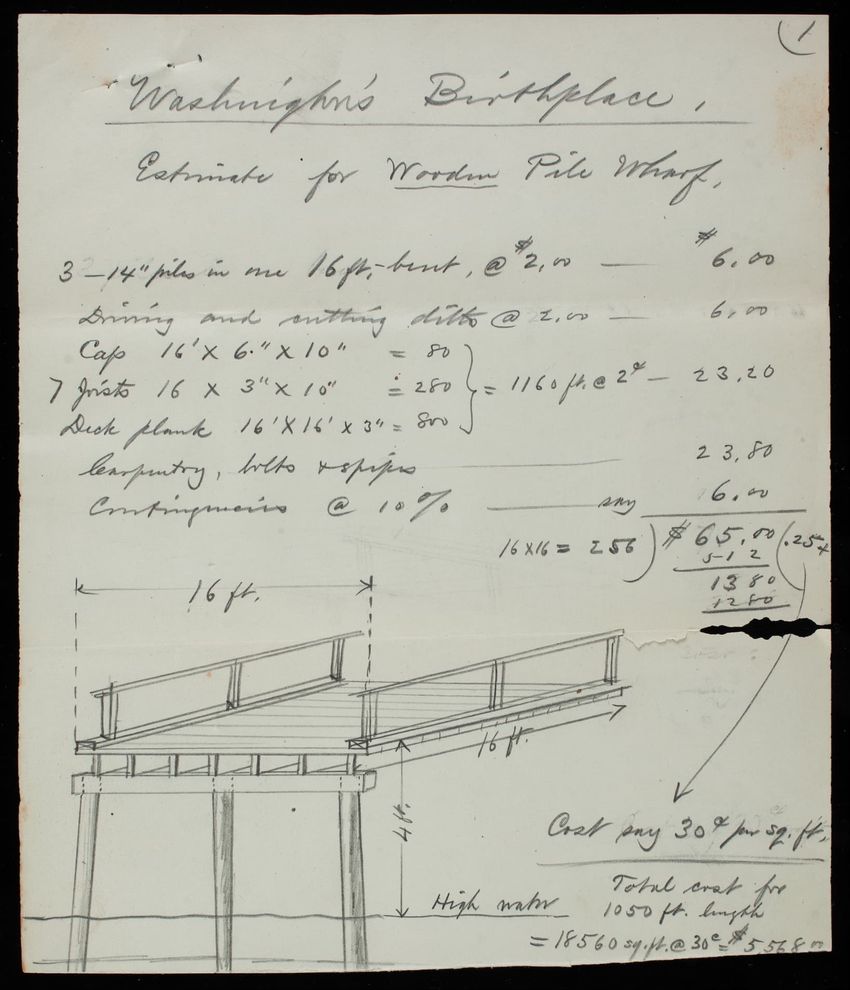 1
Washington's Birthplace,
Estimate for Wooden Pile Wharf,
3 - 14" piles in one 16 ft,- bent, @ $2,00 — $6.00
Driving and cutting ditto @ 2,00 — 6,00
Cap 16' X 6." X 10" = 80
7 Joists 16 X 3" X 10" = 280 = 1160 ft. @ 2¢ — 23,20
Deck plank 16' X 16' x 3" = 800
Carpentry, bolts & spikes — 23,80
Contingencies @ 10 % — say 6.00
16 X 16 = 256 ) $65.00 ( .25+
512
1380
1280
16 ft.
16 ft.
4 ft.
High water
Cost say 30¢ per sq. ft,
Total cost for
1050 ft. length
= 18560 sq. ft. @ 30c = $5,568.00